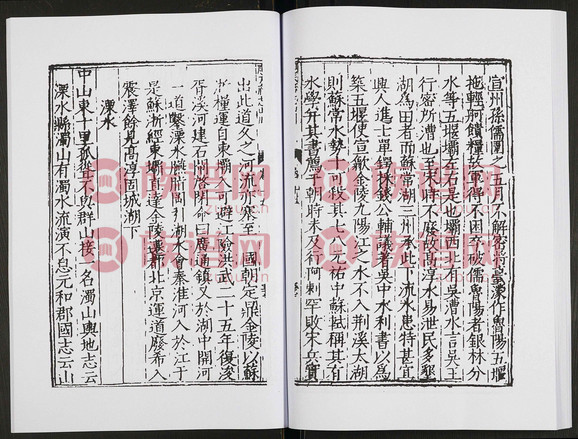 宣州孫儒圍之五月不解密將臺濛作魯陽五堰
拖輕舸饋糧故軍得不困卒破儒魯陽者銀林分
水等五堰壩左右是也壩西北有吳漕水言吳王
行密所漕也至宋時不廢故高淳水易泄民多墾
湖為田者而蘇常湖三州承此下流水患特甚宜
興人進士單鍔採錢公輔議著吳中水利書以為
築五堰使宣歙金陵九陽江之水不入荊溪太湖
則蘇常水勢十可殺其七八元祐中蘇軾稱其有
水學并其書薦于朝時未及行河剌罕敗宋兵實
出此道久之河流亦塞至 國朝定鼎金陵以蘇
浙糧運自東壩入可避江險洪武二十五年復浚
胥溪河建石閘啓閉命曰廣通鎮又於湖中開河
一道
是蘇浙經東壩直達金陵
震澤餘見高淳固城湖下
溧水
中山東十里孤從不與群山接一名濁山輿地志云
溧水縣濁山有濁水流演不息元和郡國志云山
族譜网
族譜网